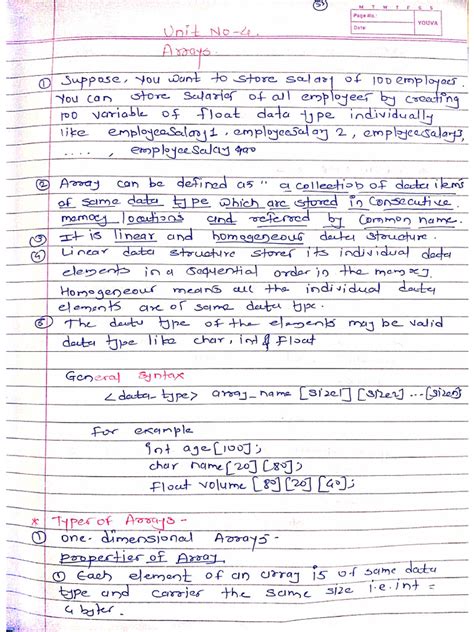 M T W T F S S
Page No.:
Date:
YOUVA
Unit No-4.
Arrays.
① Suppose, you want to store salary of 100 employees.
You can store salaries of all employees by creating
100 variable of float data type individually
like employeesalary1, employeesalary 2, employeesalary3,
...., employeesalary 100
② Array can be defined as "a collection of data items
of same data type which are stored in consecutive
memory locations and referred by common name.
③ It is linear and homogeneous data structure.
④ Linear data structure stores its individual data
elements in a sequential order in the memory.
Homogeneous means all the individual data
elements are of same data type.
⑤ The data type of the elements may be valid
data type like char, int & float
General Syntax
<data-type> array_name [size1] [size2] ... [sizen]
for example
int age[100];
char name[20][80];
float volume [80][20][40];
* Types of Arrays -
① one-dimensional Arrays-
properties of Array
① Each element of an array is of same data
type and carries the same size i.e. int =
4 bytes.